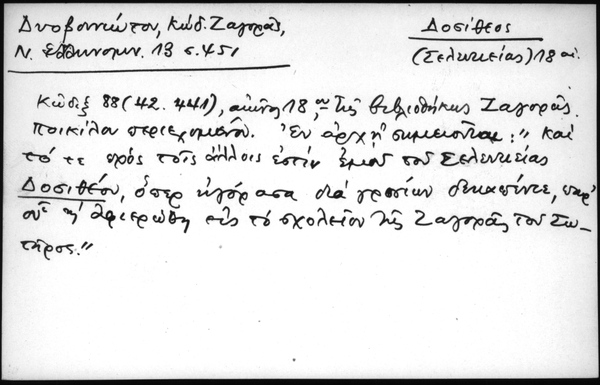 Δυοβουνιώτου, Κώδ. Ζαγορᾶς,
Ν. Ἑλληνομν. 13 σ. 451
Δοσίθεος
(Σελευκείας) 18 αἰ.
Κῶδιξ 88 (42. 441), αἰῶνος 18,ου τῆς βιβλιοθήκης Ζαγορᾶς.
ποικίλου περιεχομένου. Ἐν ἀρχῇ σημειοῦται: " Καὶ
τό τε πρὸς τοῖς ἄλλοις ἐστὶν ἐμοῦ τοῦ Σελευκείας
Δοσιθέου, ὅπερ ἠγόρασα διὰ γροσίων δεκαπέντε, παρ'
οὗ ἀφιερώθη εἰς τὸ σχολεῖον τῆς Ζαγορᾶς τοῦ Σω-
τῆρος."